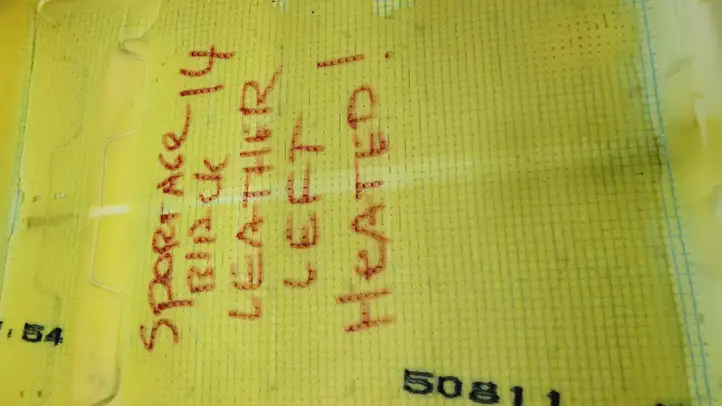 SPORTAGE 14
BlacK
LEATHER
LEFT
HeATED!
54
50811